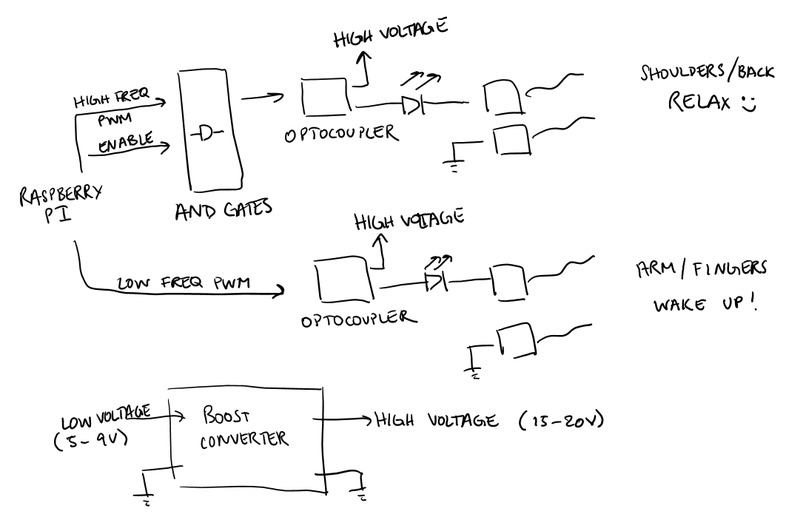 HIGH VOLTAGE
SHOULDERS/BACK
RELAX :)
HIGH FREQ
PWM
ENABLE
OPTOCOUPLER
RASPBERRY
PI
AND GATES
HIGH VOLTAGE
LOW FREQ PWM
OPTOCOUPLER
ARM/FINGERS
WAKE UP!
LOW VOLTAGE
(5-9V)
BOOST
CONVERTER
HIGH VOLTAGE (15-20V)